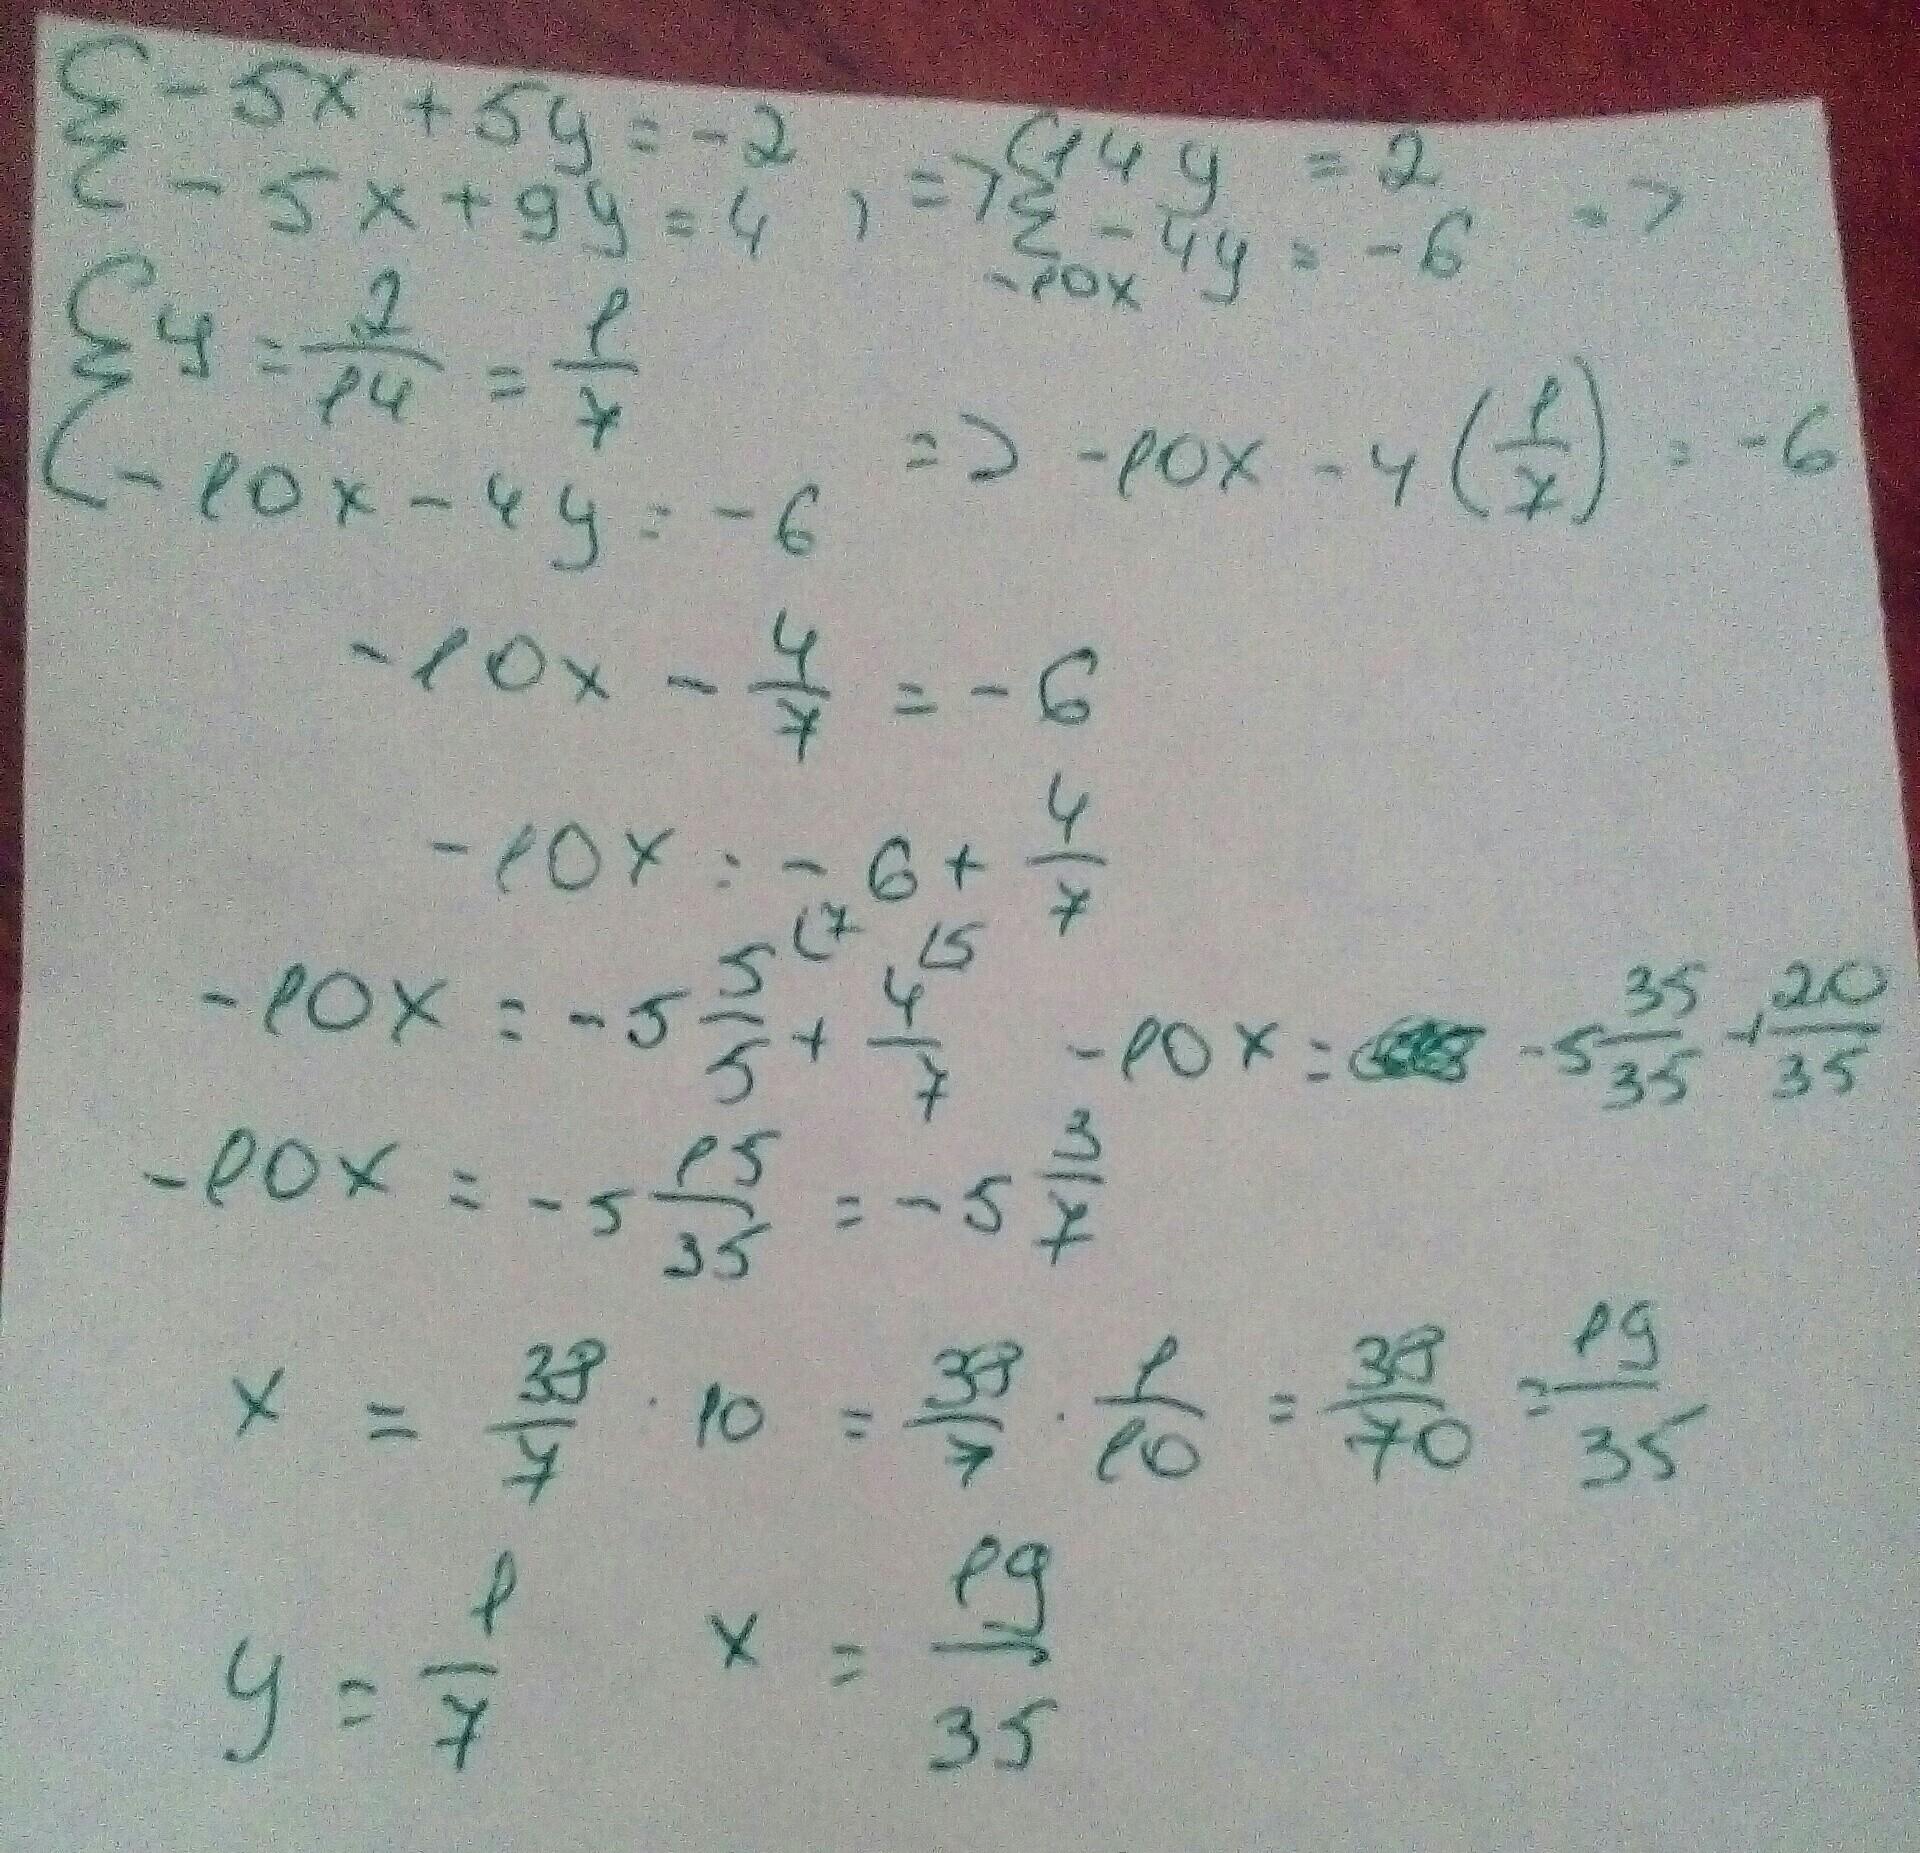 {-5x + 5y = -2
-5x + 9y = 4 , => {14y = 2
-10x -4y = -6 =>
{y = 2/14 = 1/7
-10x - 4y = -6 => -10x - 4(1/7) = -6
-10x - 4/7 = -6
-10x = -6 + 4/7
-10x = -5 5/5 (7 + 4/7 (5 -10x = -5 35/35 + 20/35
-10x = -5 15/35 = -5 3/7
x = 38/7 · 10 = 38/7 · 1/10 = 38/70 = 19/35
y = 1/7 x = 19/35